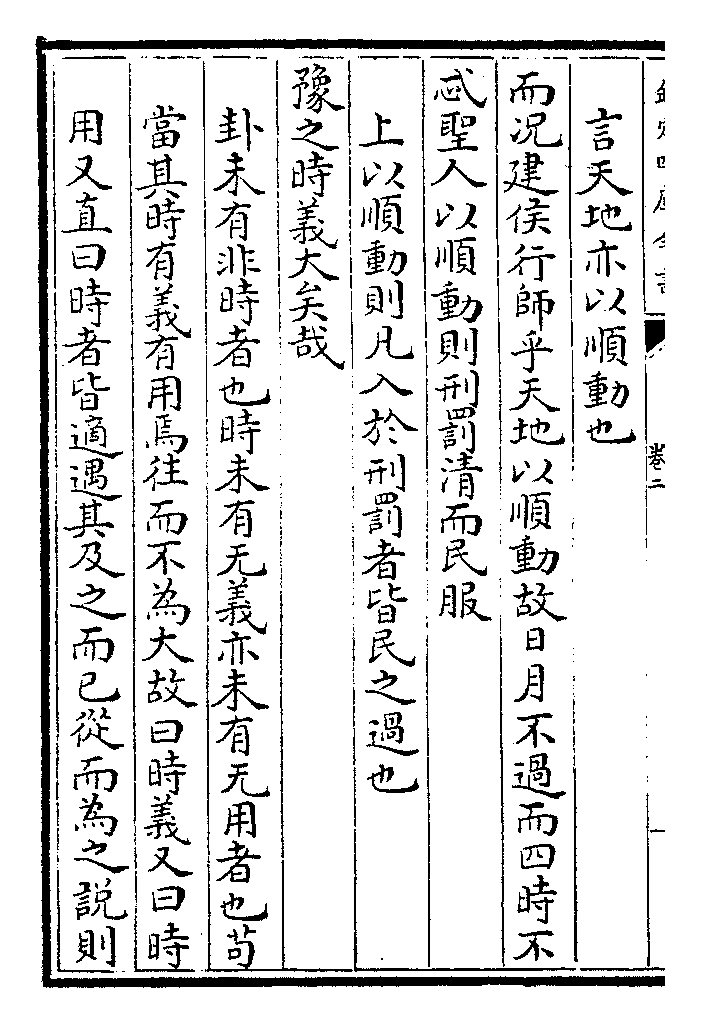 欽定四庫全書
卷二
言天地亦以順動也
而况建侯行師乎天地以順動故日月不過而四時不
忒聖人以順動則刑罰清而民服
上以順動則凡入於刑罰者皆民之過也
豫之時義大矣哉
卦未有非時者也時未有无義亦未有无用者也茍
當其時有義有用焉往而不為大故曰時義又曰時
用又直曰時者皆適遇其及之而已從而為之説則